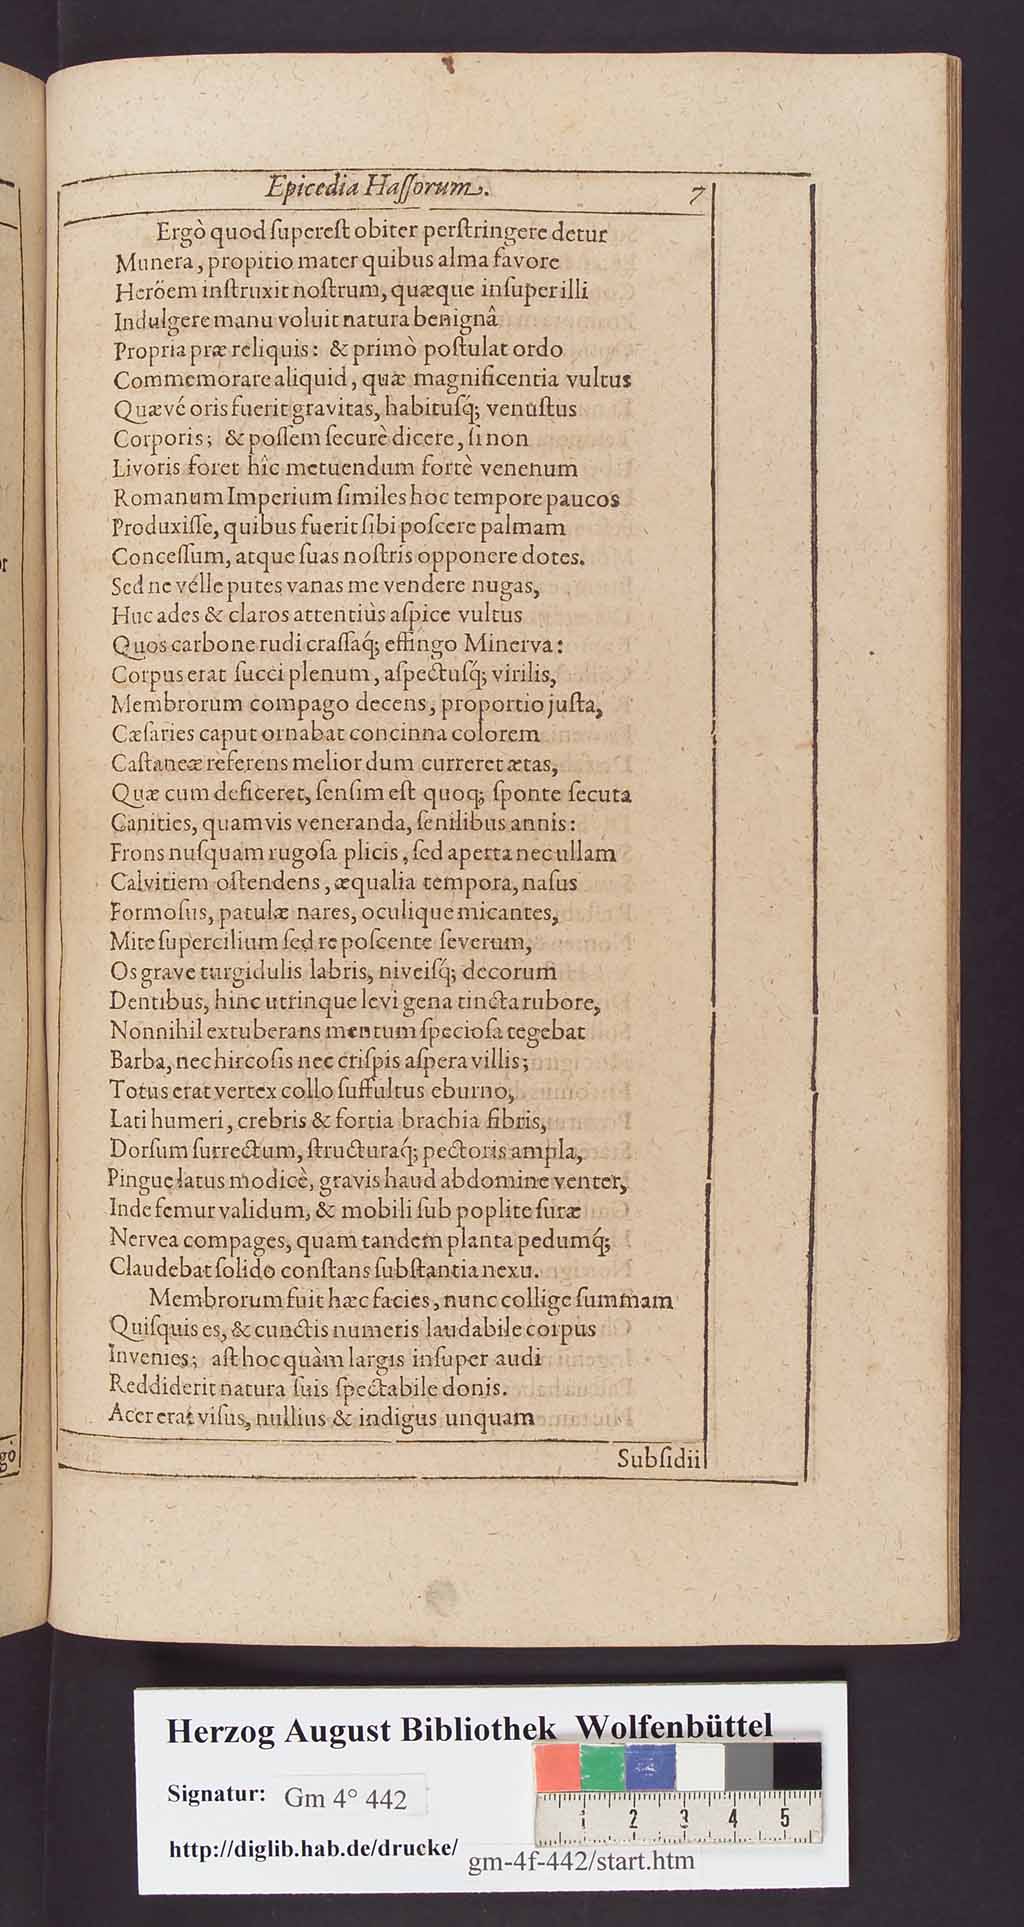 Epicedia Haſſorum. 7
Ergò quod ſupereſt obiter perſtringere detur
Munera, propitio mater quibus alma favore
Heröem inſtruxit noſtrum, quæque inſuper illi
Indulgere manu voluit natura benignâ
Propria præ reliquis: & primò poſtulat ordo
Commemorare aliquid, quæ magnificentia vultus
Quævé oris fuerit gravitas, habituſq́; venuſtus
Corporis; & poſſem ſecurè dicere, ſi non
Livoris foret hîc metuendum fortè venenum
Romanum Imperium ſimiles hoc tempore paucos
Produxiſſe, quibus fuerit ſibi poſcere palmam
Conceſſum, atque ſuas noſtris opponere dotes.
Sed ne vélle putes vanas me vendere nugas,
Huc ades & claros attentiùs aſpice vultus
Quos carbone rudi craſſaq́; effingo Minerva:
Corpus erat ſucci plenum, aſpectuſq́; virilis,
Membrorum compago decens, proportio juſta,
Cæſaries caput ornabat concinna colorem
Caſtaneæ referens melior dum curreret ætas,
Quæ cum deficeret, ſenſim eſt quoq; ſponte ſecuta
Canities, quamvis veneranda, ſenilibus annis:
Frons nuſquam rugoſa plicis, ſed aperta nec ullam
Calvitiem oſtendens, æqualia tempora, naſus
Formoſus, patulæ nares, oculique micantes,
Mite ſupercilium ſed re poſcente ſeverum,
Os grave turgidulis labris, niveiſq́; decorum
Dentibus, hinc utrinque levi gena tincta rubore,
Nonnihil extuberans mentum ſpecioſa tegebat
Barba, nec hircoſis nec criſpis aſpera villis;
Totus erat vertex collo ſuffultus eburno,
Lati humeri, crebris & fortia brachia fibris,
Dorſum ſurrectum, ſtructuraq́; pectoris ampla,
Pingue latus modicè, gravis haud abdomine venter,
Inde femur validum, & mobili ſub poplite ſuræ
Nervea compages, quam tandem planta pedumq́;
Claudebat ſolido conſtans ſubſtantia nexu.
Membrorum fuit hæc facies, nunc collige ſummam
Quiſquis es, & cunctis numeris laudabile corpus
Invenies; aſt hoc quàm largis inſuper audi
Reddiderit natura ſuis ſpectabile donis.
Acer erat viſus, nullius & indigus unquam
Subſidii
Herzog August Bibliothek Wolfenbüttel
Signatur: Gm 4° 442
http://diglib.hab.de/drucke/ gm-4f-442/start.htm
1 2 3 4 5